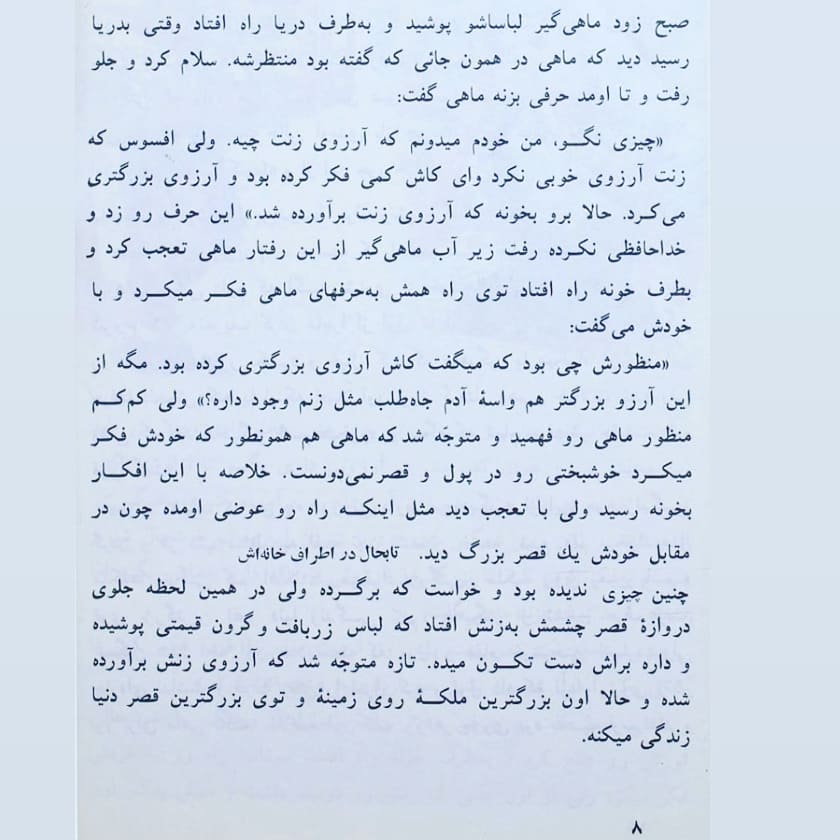 صبح زود ماهی‌گیر لباساشو پوشید و به‌طرف دریا راه افتاد وقتی بدریا
رسید دید که ماهی در همون جائی که گفته بود منتظرشه. سلام کرد و جلو
رفت و تا اومد حرفی بزنه ماهی گفت:
«چیزی نگـو، من خودم میدونم که آرزوی زنت چیه. ولی افسوس که
زنت آرزوی خوبی نکرد وای کاش کمی فکر کرده بود و آرزوی بزرگتری
می‌کـرد. حالا برو بخونه که آرزوی زنت برآورده شد.» این حرف رو زد و
خداحافظی نکـرده رفت زیر آب ماهی‌گیر از این رفتار ماهی تعجب کرد و
بطرف خونه راه افتاد توی راه همش به‌حرفهای ماهی فکـر میکـرد و با
خودش می‌گفت:
«منظورش چی بود که میگفت کاش آرزوی بزرگتری کرده بود. مگه از
این آرزو بزرگتر هم واسهٔ آدم جاه‌طلب مثل زنم وجود داره؟» ولی کم‌کـم
منظور ماهی رو فهمید و متوجّه شد که ماهی هم همونطور که خودش فکـر
میکـرد خوشبختی رو در پول و قصر نمی‌دونست. خلاصه با این افکـار
بخونه رسید ولی با تعجب دید مثل اینکـه راه رو عوضی اومده چون در
مقابل خودش یك قصر بزرگ دید. تابحال در اطراف خانه‌اش
چنین چیزی ندیده بود و خواست که برگـرده ولی در همین لحظه جلوی
دروازهٔ قصر چشمش به‌زنش افتاد که لباس زربافت و گرون قیمتی پوشیده
و داره براش دست تکـون میده. تازه متوجّه شد که آرزوی زنش برآورده
شده و حالا اون بزرگترین ملکـهٔ روی زمینهٔ و توی بزرگترین قصر دنیا
زندگی میکنه.
۸